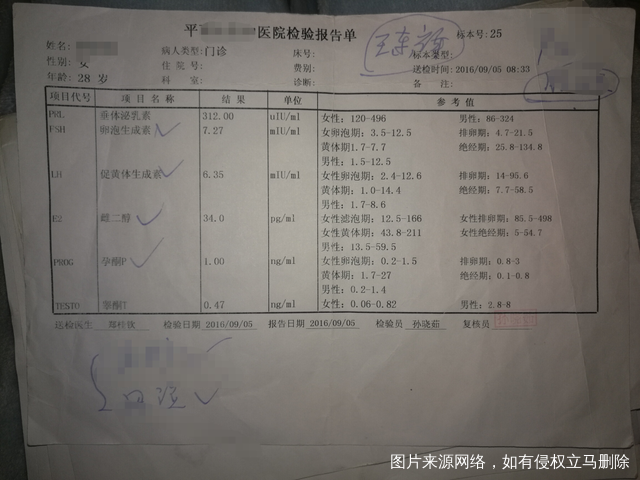 平 医院检验报告单
标本号:25
姓名:
病人类型:门诊
床号:
标本类型:
性别: 女
住院号:
费别:
送检时间:2016/09/05 08:33
年龄: 28 岁
科 室:
诊断:
备 注:
项目代号 项 目 名 称 结 果 单位 参 考 值
PRL 垂体泌乳素 312.00 uIU/ml 女性: 120-496 男性: 86-324
FSH 卵泡生成素 7.27 mIU/ml 女卵泡期: 3.5-12.5 排卵期: 4.7-21.5
黄体期1.7-7.7 绝经期: 25.8-134.8
男性: 1.5-12.5
LH 促黄体生成素 6.35 mIU/ml 女性卵泡期: 2.4-12.6 排卵期: 14-95.6
黄体期: 1.0-14.4 绝经期: 7.7-58.5
男性: 1.7-8.6
E2 雌二醇 34.0 pg/ml 女性滤泡期: 12.5-166 女性排卵期: 85.5-498
女性黄体期: 43.8-211 女性绝经期: 5-54.7
男性: 13.5-59.5
PROG 孕酮P 1.00 ng/ml 女性卵泡期: 0.2-1.5 排卵期: 0.8-3
黄体期: 1.7-27 绝经期: 0.1-0.8
男性: 0.2-1.4
TESTO 睾酮T 0.47 ng/ml 女性: 0.06-0.82 男性: 2.8-8
送检医生 郑桂钦 检验日期 2016/09/05 报告日期 2016/09/05 检验员 孙晓茹 复核员
图片来源网络,如有侵权立马删除